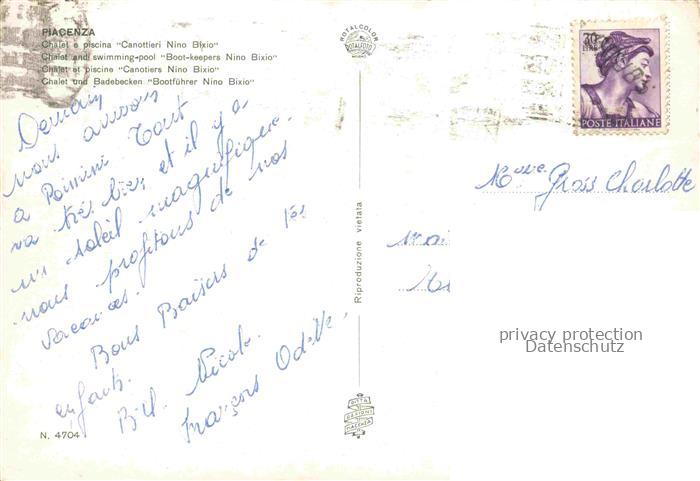 PIACENZA
Chalet e piscina "Canottieri Nino Bixio"
Chalet and swimming-pool "Boot-keepers Nino Bixio"
Chalet et piscine "Canotiers Nino Bixio"
Chalet und Badebecken "Bootführer Nino Bixio"
Demain
nous arrivons
a Rimini. Tout
va très bien et il y a
un soleil magnifique.
nous profitons de nos
vacances.
Bons Baisers de
enfants.
Nicole.
François Odette.
N. 4704
ROTALCOLOR
ROTALFOTO
Riproduzione vietata
DITTA
EDIZIONI
PIACENZA
30
LIRE
POSTE ITALIANE
Mme Gross Charlotte
privacy protection
Datenschutz